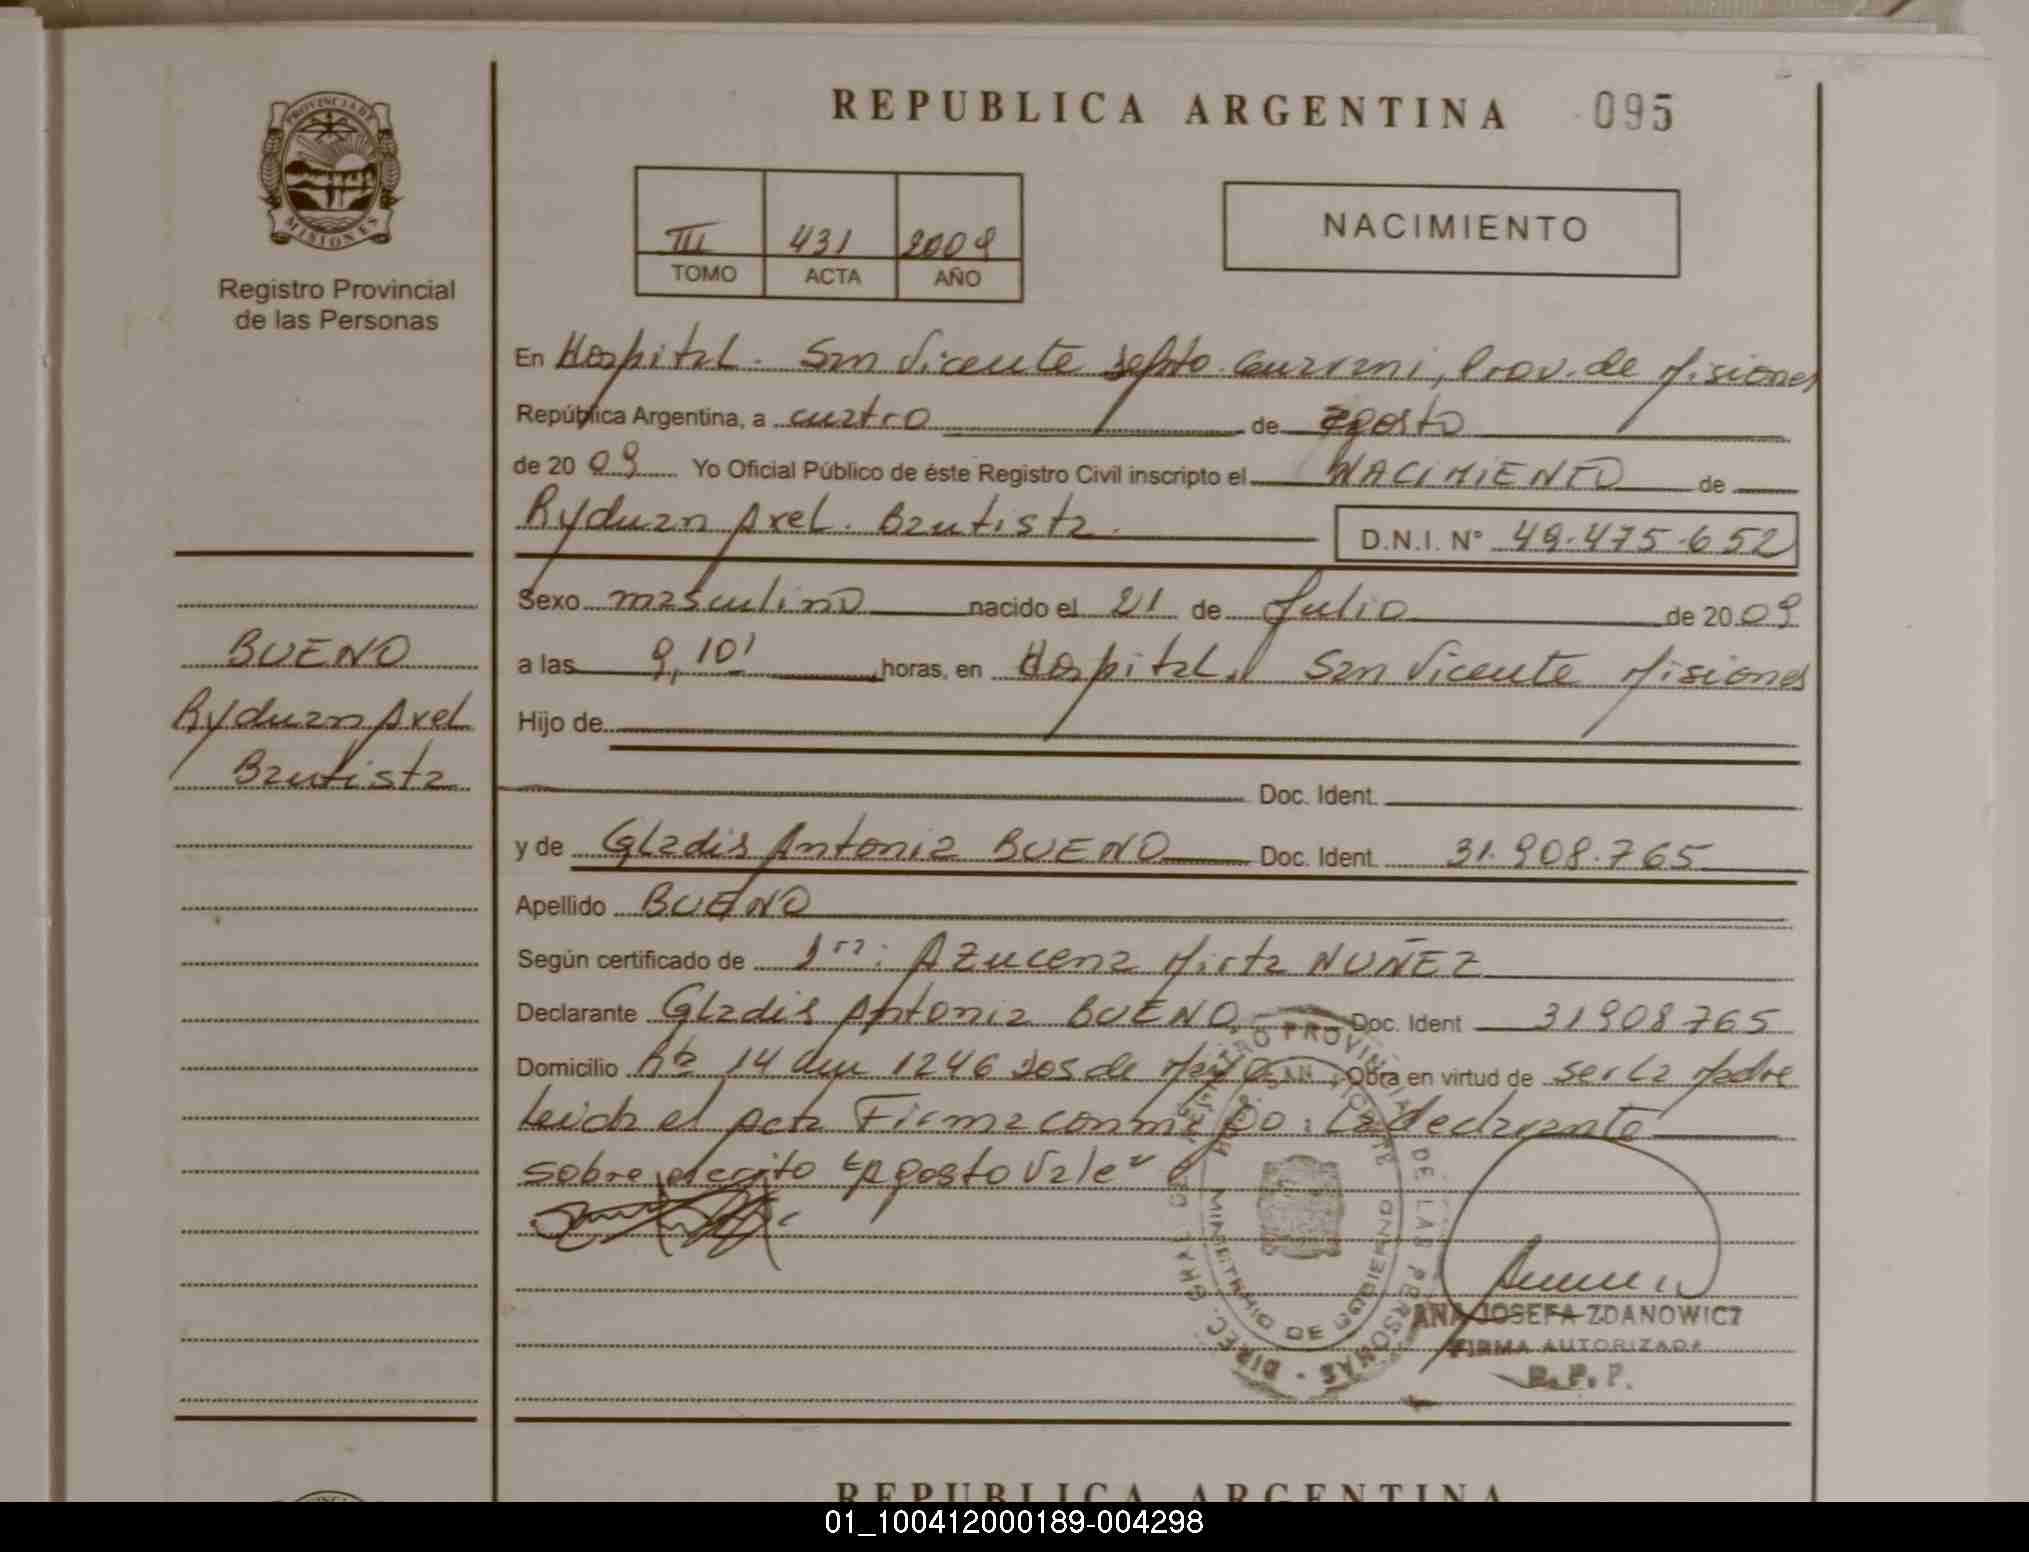 PROVINCIA DE
MISIONES
Registro Provincial
de las Personas
BUENO
Ryduan Axel
Bautista
REPUBLICA ARGENTINA 095
III 431 2009
TOMO ACTA AÑO
NACIMIENTO
En Hospital. San Vicente Depto. Guarani, Prov. de Misiones
República Argentina, a cuatro de agosto
de 2009 Yo Oficial Público de éste Registro Civil inscripto el NACIMIENTO de
Ryduan Axel. Bautista. D.N.I. N° 49.475.652
Sexo masculino nacido el 21 de Julio de 2009
a las 9,10' horas, en Hospital. San Vicente Misiones
Hijo de
Doc. Ident.
y de Gladis Antonia BUENO Doc. Ident. 31.908.765
Apellido BUENO
Según certificado de Azucena Mirta NUÑEZ
Declarante Gladis Antonia BUENO Doc. Ident 31908765
Domicilio 14 1246 Dos de Mayo Obra en virtud de ser la Madre
leida el Acta Firma conmigo: La declarante
sobre escrito "Agosto Vale"
DIREC. GRAL. DEL REGISTRO PROVINCIAL DE LAS PERSONAS
SAN VICENTE
MINISTERIO DE GOBIERNO
ANA JOSEFA ZDANOWICZ
FIRMA AUTORIZADA
R.P.P.
REPUBLICA ARGENTINA
01_100412000189-004298